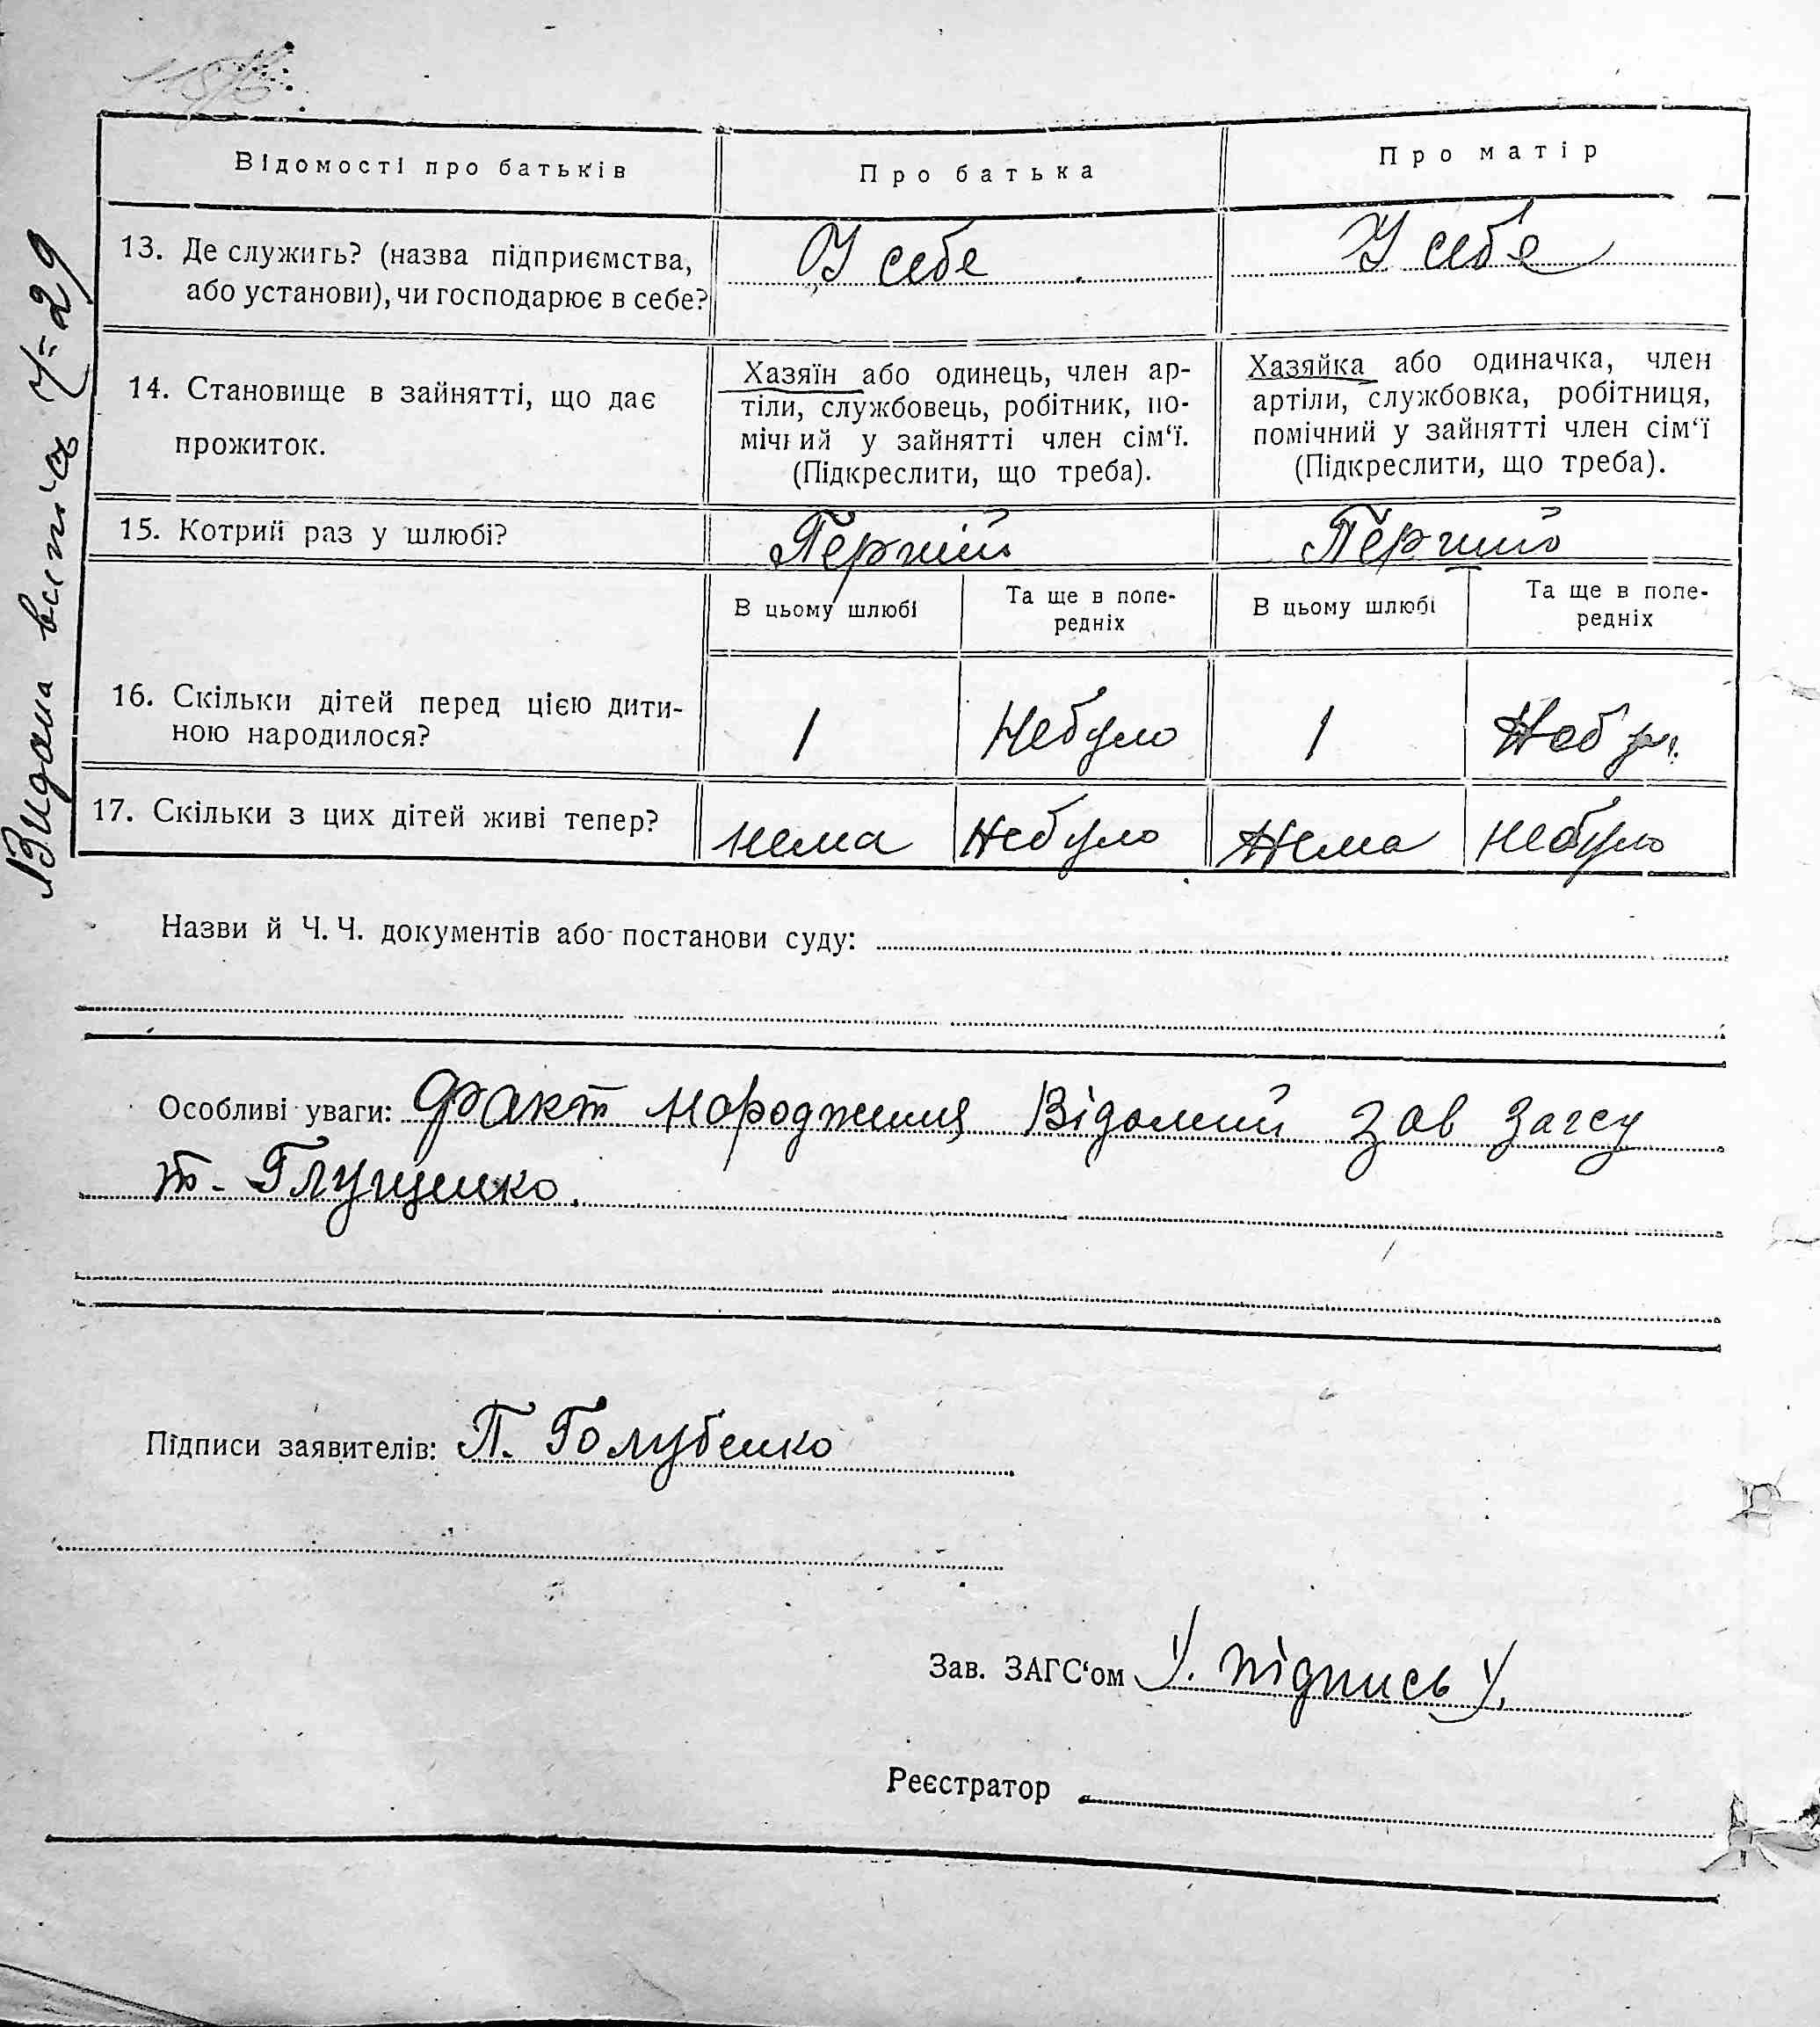 Відомості про батьків Про батька Про матір
13. Де служить? (назва підприємства, У себе У себе
або установи), чи господарює в себе?
14. Становище в зайнятті, що дає
прожиток.
Хазяїн або одинець, член ар-
тіли, службовець, робітник, по-
мічний у зайнятті член сім‘ї.
(Підкреслити, що треба).
Хазяйка або одиначка, член
артіли, службовка, робітниця,
помічний у зайнятті член сім‘ї
(Підкреслити, що треба).
15. Котрий раз у шлюбі? Перший Перший
В цьому шлюбі Та ще в попе-
редніх
В цьому шлюбі Та ще в попе-
редніх
16. Скільки дітей перед цією дити-
ною народилося?
1 Небуло 1
17. Скільки з цих дітей живі тепер? нема Небуло Нема небуло
Видана
Назви й Ч. Ч. документів або постанови суду:
Особливі уваги: Факт народження Відомий зав Загсу
т. Глущенко.
Підписи заявителів: П. Голубенко
Зав. ЗАГС‘ом /. підпись /.
Реєстратор